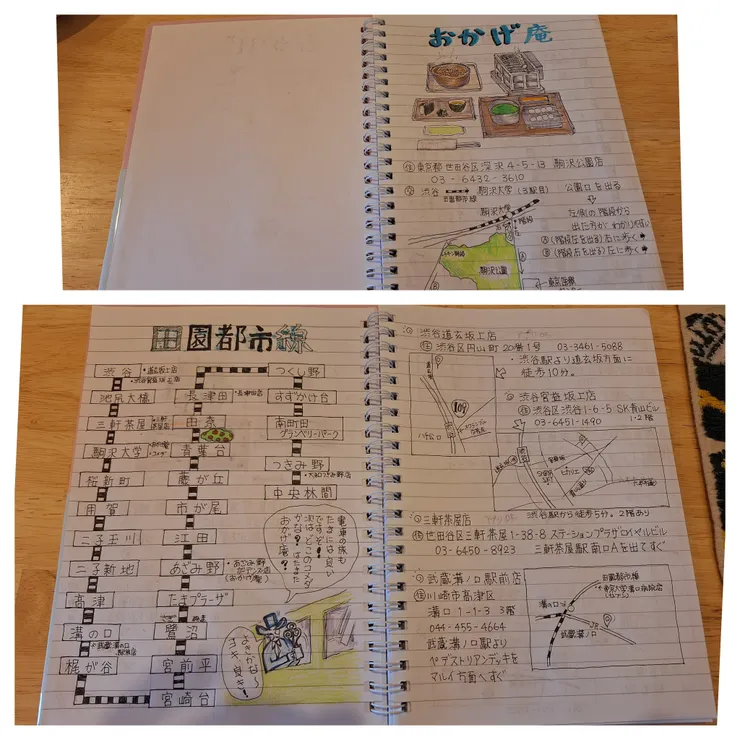 おかげ庵
㊟東京都世田谷区深沢4-5-13 駒沢公園店
03-6432-3610
渋谷 駒沢大学(3駅目) 公園口を出る
田園都市線
左側の階段から
出た方がわかりやすい
Ⓐ(階段左を出る)右に歩く
Ⓑ(階段右を出る)左に歩く
駒沢大学
階段
駒沢公園
田園都市線
渋谷
・道玄坂上店
・渋谷宮益坂上店
池尻大橋
三軒茶屋
駒沢大学
桜新町
用賀
二子玉川
二子新地
高津
溝の口
・武蔵溝の口駅前店
梶が谷
宮崎台
宮前平
鷺沼
たまプラーザ
あざみ野
(おかげ庵)
江田
市が尾
藤が丘
青葉台
田奈
長津田
・長津田店
つくし野
すずかけ台
南町田
グランベリーパーク
つきみ野
中央林間
電車の旅も
たまには良い
ですぞ!
次はどこのコメダ
かな? はたまた
おかげ庵?
渋谷道玄坂上店
渋谷区円山町20番1号 03-3461-5088
・渋谷駅より道玄坂方面に
徒歩10分。
109
渋谷宮益坂上店
渋谷区渋谷1-6-5 SK青山ビル
1-2階
03-6451-1490
ヒカリエ
渋谷駅から徒歩5分。2階あり
三軒茶屋店
世田谷区三軒茶屋1-38-8 ステーションプラザロイヤルビル
03-6450-8923 三軒茶屋駅南口Aを出てすぐ
武蔵溝ノ口駅前店
川崎市高津区
溝口1-1-3 3階
044-455-4664
武蔵溝ノ口駅より
ペデストリアンデッキを
マルイ方面へすぐ
田園都市線
溝の口
JR
武蔵溝ノ口